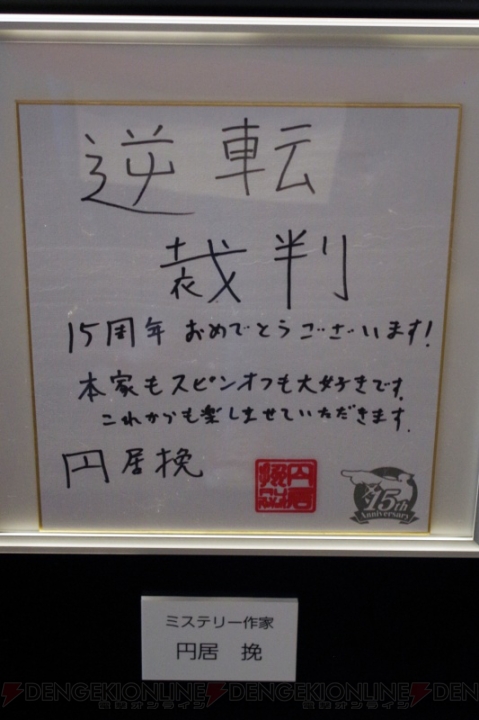 逆転
裁判
15周年 おめでとうございます!
本家もスピンオフも大好きです。
これからも楽しませていただきます。
円居挽
15th
Anniversary
ミステリー作家
円居 挽
DENGEKIONLINE
電撃オンライン